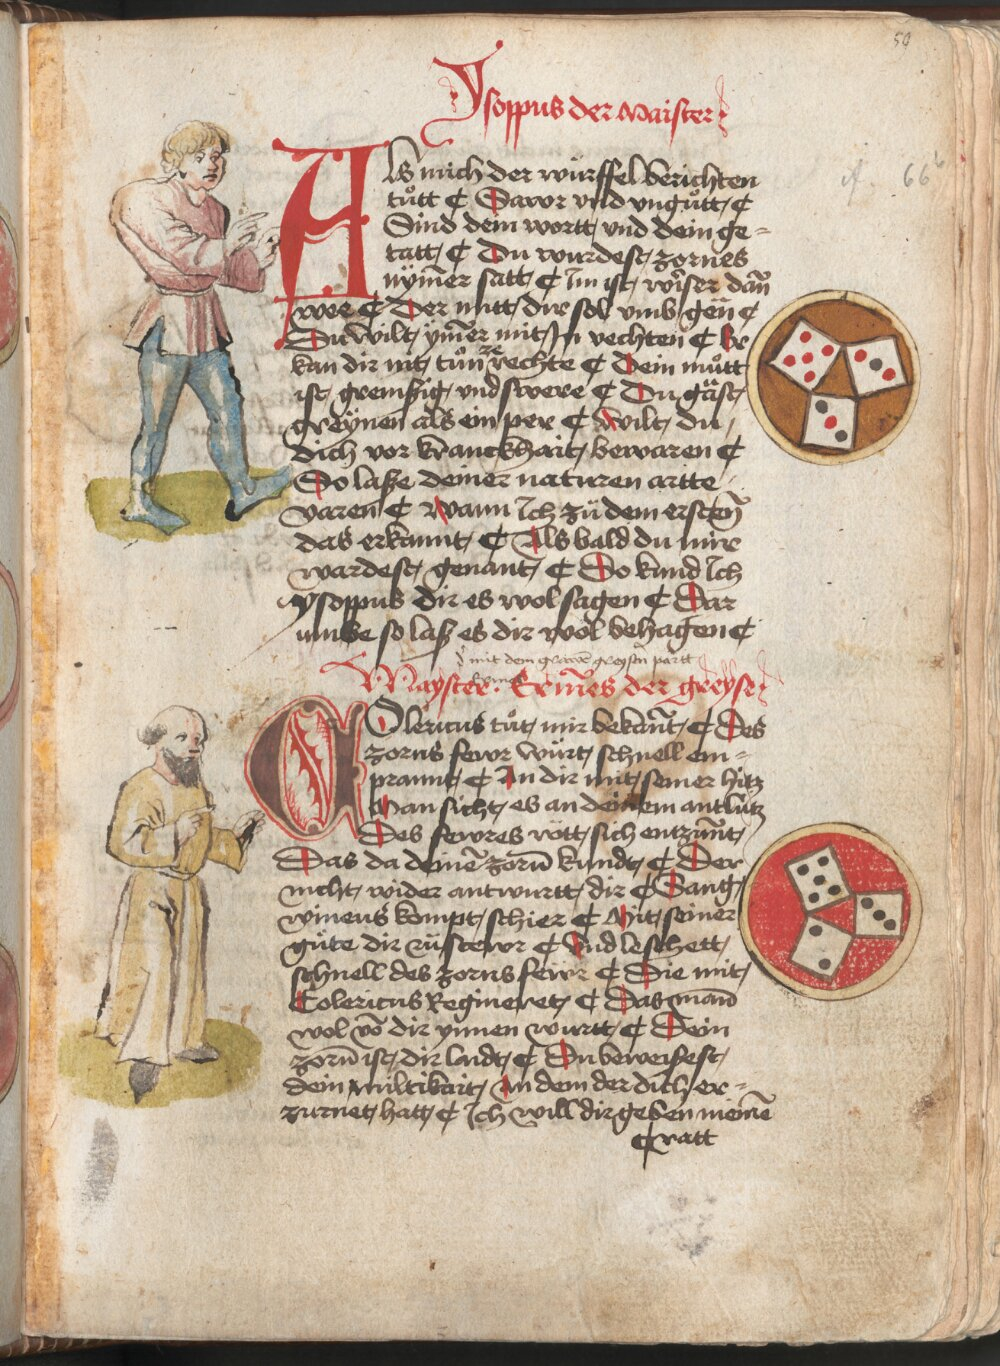 59
Ysoppus der Maister
66
Als mich der würffel berichten
tůtt ¢ Dawr vnd vngůtt ¢
Sind dem wortt vnd dein ge=
tatt ¢ Du wurdest zornes
nӱmer satt ¢ Im ist wirser dañ
wee ¢ Der mitt dir sol vmb gen ¢
Du wilt ӱmer mit In vechten ¢ Er
kan dir nit tůn ze rechte ¢ Dein můtt
ist gremsig vnd swere ¢ Du gäst
greӱnen als ein per ¢ Wilt du
dich vor kranckhait bewaren ¢
So lasse deiner naturen artte
varen ¢ Wann Ich zü dem ersten
das erkannt ¢ Als bald du mir
wardest genant ¢ So kund Ich
ysoppus dir es wol sagen ¢ Dar
umbe so lasß es dir wol behagen ¢
mit dem grawen greysen partt
Mayster Ermes der greyse
Colericus tůt mir bekant ¢ Des
zorns fewr würt schnell em=
prannt ¢ An dir mit seiner hitz
Man sicht es an deinem antlütz
Des fewres rött sich entzunt
Das da deinē zorn̄ kundt ¢ Der
nicht wider antwurtt dir ¢ Sang
wineus kompt schier ¢ Mit seiner
güte dir zü stewr ¢ Vnd leschett
schnell des zorns fewr ¢ Die mit
Colericus Regineret ¢ Das man̄
wol võ dir ynnen wurtt ¢ Dein
zorn̄ ist dir laidt ¢ Du beweisest
dein miltikait An dem der dich er=
zurnet hatt ¢ Ich will dir geben meinē
ratt